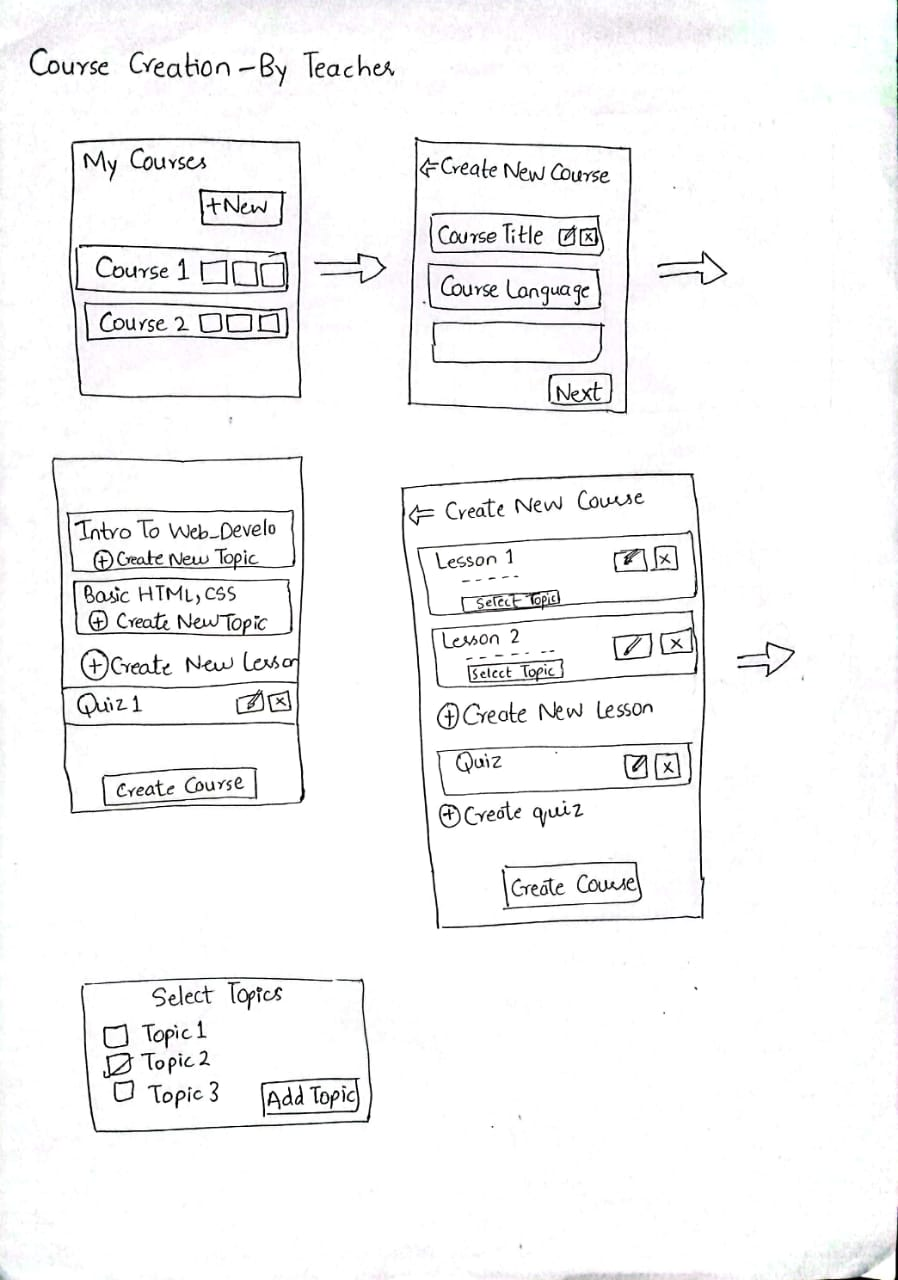 Course Creation - By Teacher
My Courses
+New
Course 1
Course 2
Create New Course
Course Title
x
Course Language
Next
Intro To Web_Develo
+ Create New Topic
Basic HTML, CSS
+ Create New Topic
+ Create New Lesson
Quiz 1
x
Create Course
Create New Course
Lesson 1
x
Select Topic
Lesson 2
x
Select Topic
+ Create New Lesson
Quiz
x
+ Create quiz
Create Course
Select Topics
Topic 1
Topic 2
Topic 3
Add Topic